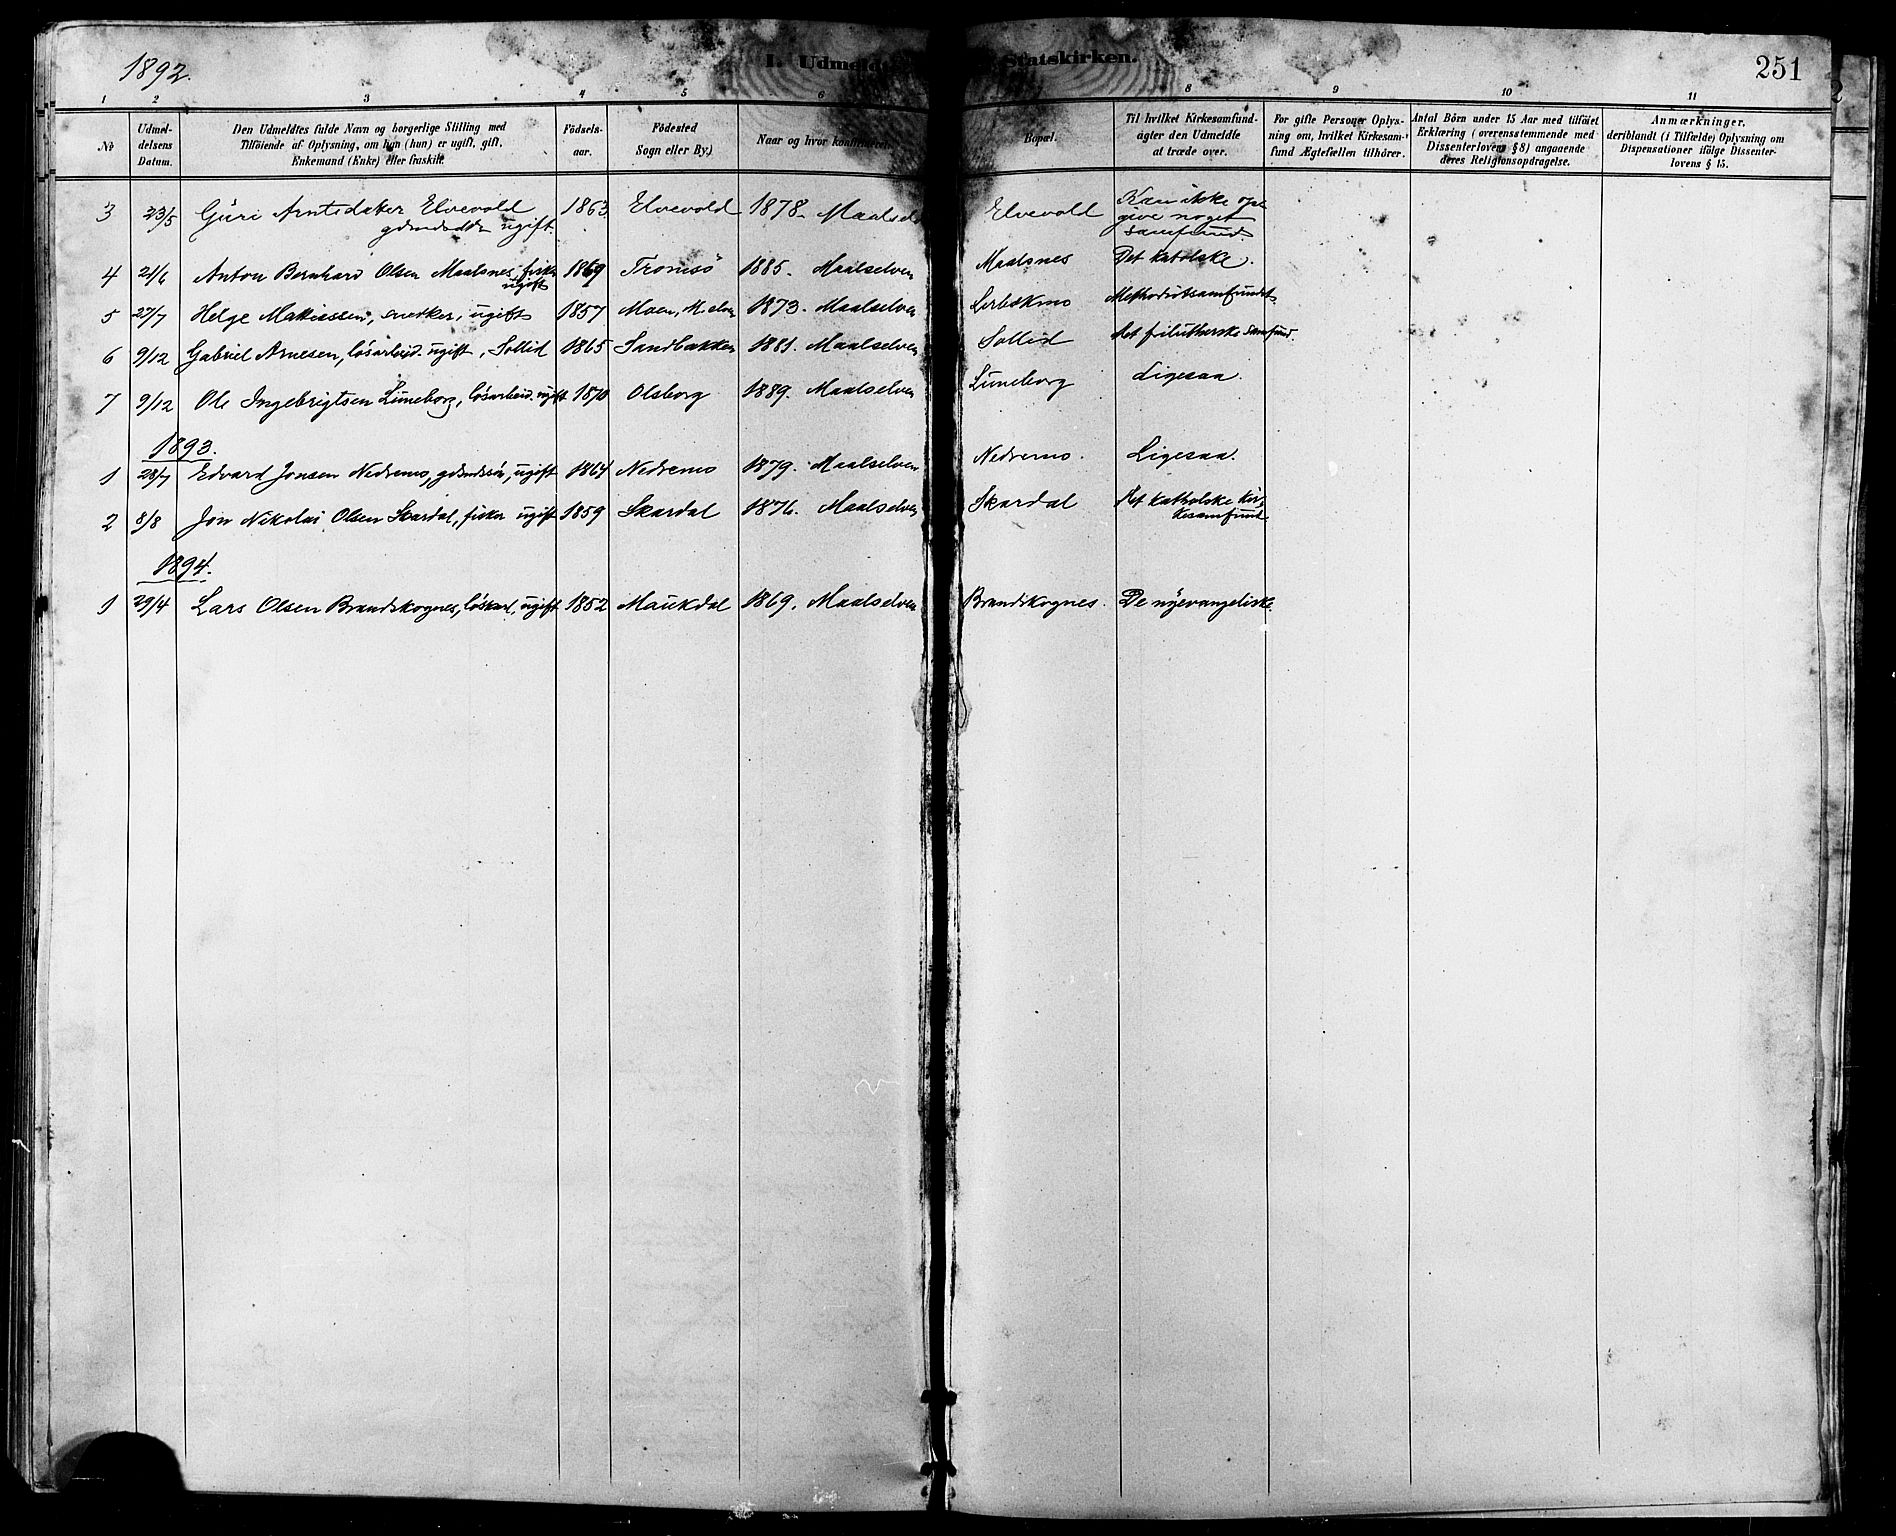 1892.
I. Udmeldt Statskirken.
251
1 2 3 4 5 6 8 9 10 11
№
Udmel-
delsens
Datum.
Den Udmeldtes fulde Navn og borgerlige Stilling med
Tilføiende af Oplysning, om han (hun) er ugift, gift,
Enkemand (Enke) eller fraskilt.
Fødsels-
aar.
Fødested
Sogn eller By.)
Naar og hvor konfirmeret.
Bopæl.
Til hvilket Kirkesamfund
agter den Udmeldte
at træde over.
For gifte Personer Oplys-
ning om, hvilket Kirkesam-
fund Ægtefællen tilhører.
Antal Børn under 15 Aar med tilføiet
Erklæring (overensstemmende med
Dissenterlovens § 8) angaaende
deres Religionsopdragelse.
Anmærkninger,
deriblandt (i Tilfælde) Oplysning om
Dispensationer ifølge Dissenter-
lovens § 15.
3 23/5 Guri Arntsdatter Elvevold 1863. Elvevold 1878. Maalselv Elvevold Kan ikke op-
ugift. give noget
samfund.
4 21/6 Anton Bernhard Olsen Maalsnes, fisker 1869 Tromsö 1885. Maalselven Maalsnes Det katolske.
ugift
5 27/7 Helge Mathiessen, snedker, ugift 1857 Moen, M.elven 1873. Maalselven Methodistsamfundet
6 9/12 Gabriel Arnesen, løsarbeid. ugift, Sollid 1865 Sandbakken 1881. Maalselven Sollid Det frilutherske samfund.
7 9/12 Ole Ingebrigtsen Luneborg, løsarbeid. ugift 1870 Olsborg 1889. Maalselven Luneborg Ligesaa.
1893.
1 28/7 Edvard Jonsen Nedremo, gdmdssøn, ugift 1864 Nedremo 1879. Maalselven Nedremo. Ligesaa.
2 8/8 Jon Nikolai Olsen Skardal, fisker ugift 1859 Skardal 1876. Maalselven Skardal Det katholske Kir-
kesamfund.
1894.
1 29/4 Lars Olsen Brandskognes, løskarl, ugift 1852 Maukdal 1869. Maalselven Brandskognes. De nyevangeliske.